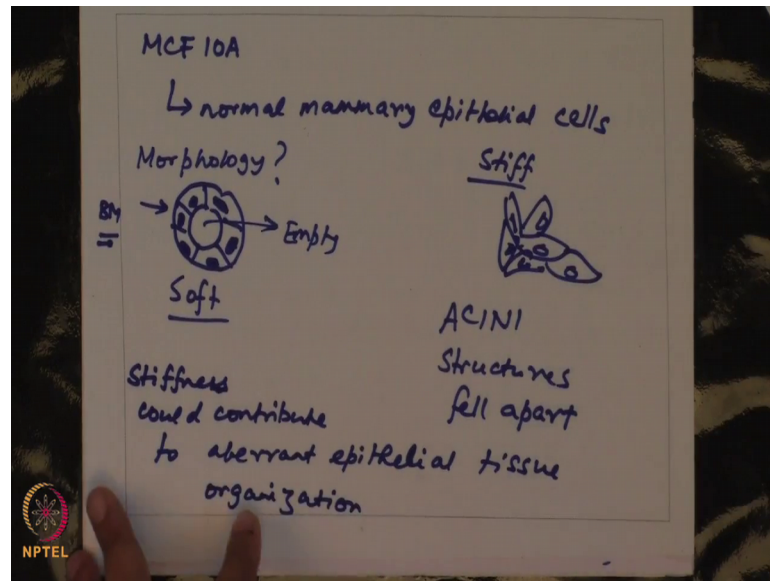 MCF 10A
↳ normal mammary epithelial cells
Morphology?
Stiff
BM
Empty
Soft
ACINI
Structures
fell apart
Stiffness
could contribute
to aberrant epithelial tissue
organization
NPTEL